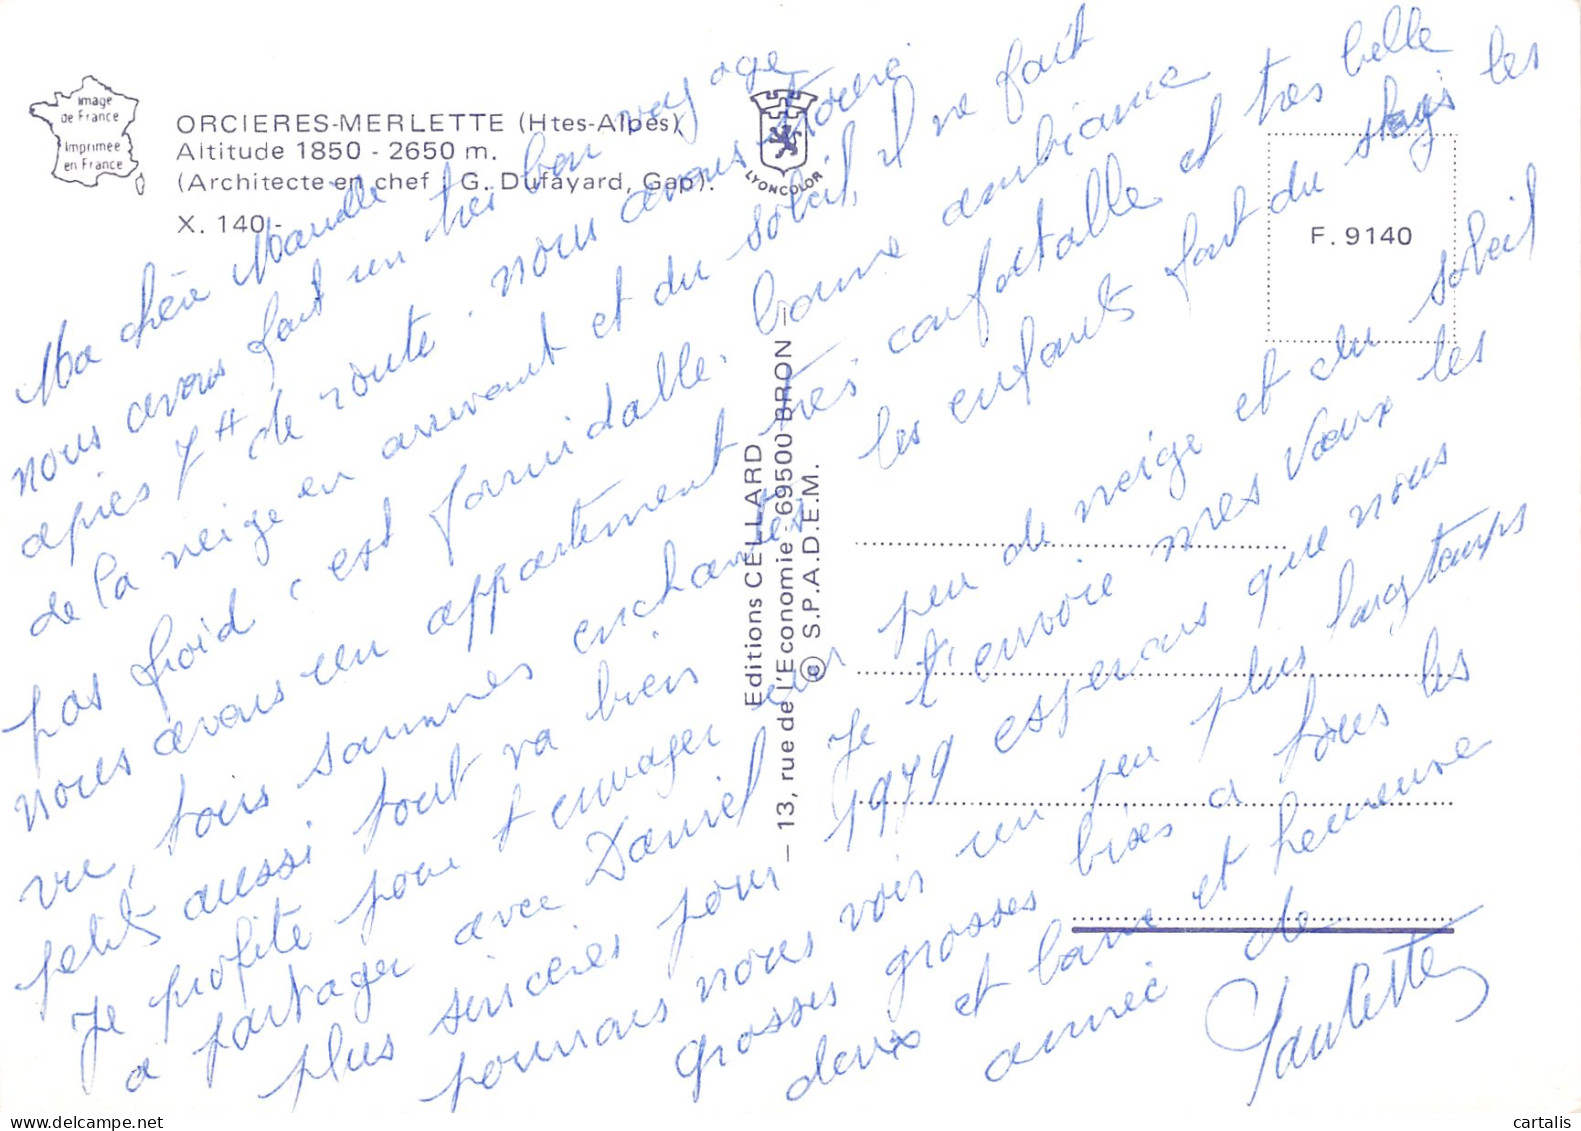 Image
de France
Imprimée
en France
ORCIERES-MERLETTE (Htes-Alpes)
Altitude 1850 - 2650 m.
(Architecte en chef : G. Dufayard, Gap).
X. 140.-
LYONCOLOR
F. 9140
Editions CELLARD
— 13, rue de l'Economie - 69500 BRON —
© S.P.A.D.E.M.
Ma chère
nous avons fait un très bon voyage
après 7H de route. nous avons trouvé
de la neige en arrivant et du soleil, il ne fait
pas froid c'est formidable. bonne ambiance
nous avons un appartement très confortable et très belle
vue, tous sommes enchantés les enfants font du ski les
petits aussi tout va bien
Je profite pour t'envoyer un peu de neige et du soleil
a partager avec Daniel Je t'envoie mes vœux les
plus sincères pour 1979 espérons que nous
pourrons nous voir un peu plus longtemps
grosses grosses bises a tous les
deux et bonne et heureuse
année de
Paulette